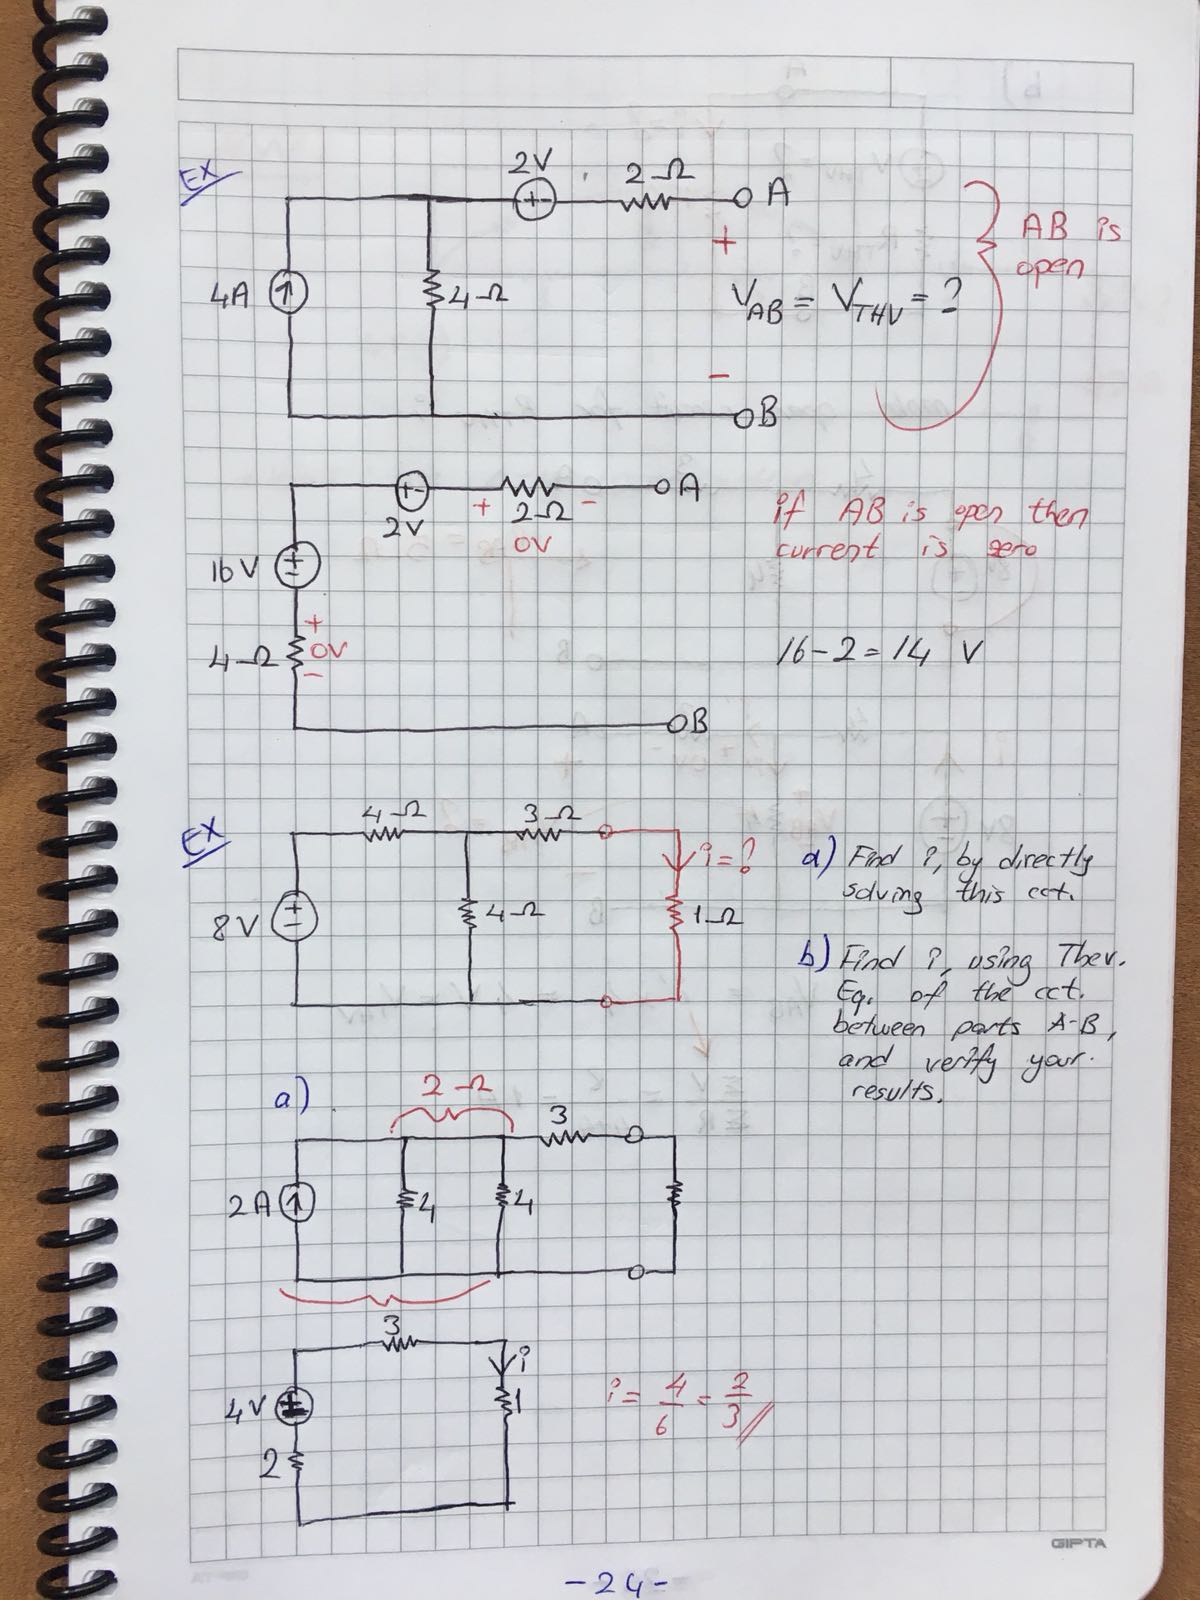 EX
2V
2Ω
A
4A
4Ω
+
V_AB = V_THV = ?
-
B
AB is
open
2V
+ 2Ω -
0V
A
if AB is open then
current is zero
16V
4Ω
+
0V
-
16-2=14 V
B
EX
4Ω
3Ω
8V
4Ω
i=?
1Ω
a) Find i, by directly
solving this cct.
b) Find i, using Thev.
Eq. of the cct.
between parts A-B,
and verify your
results.
a)
2Ω
3
2A
4
4
3
i
4V
1
2
i = 4/6 = 2/3 //
GIPTA
-24-